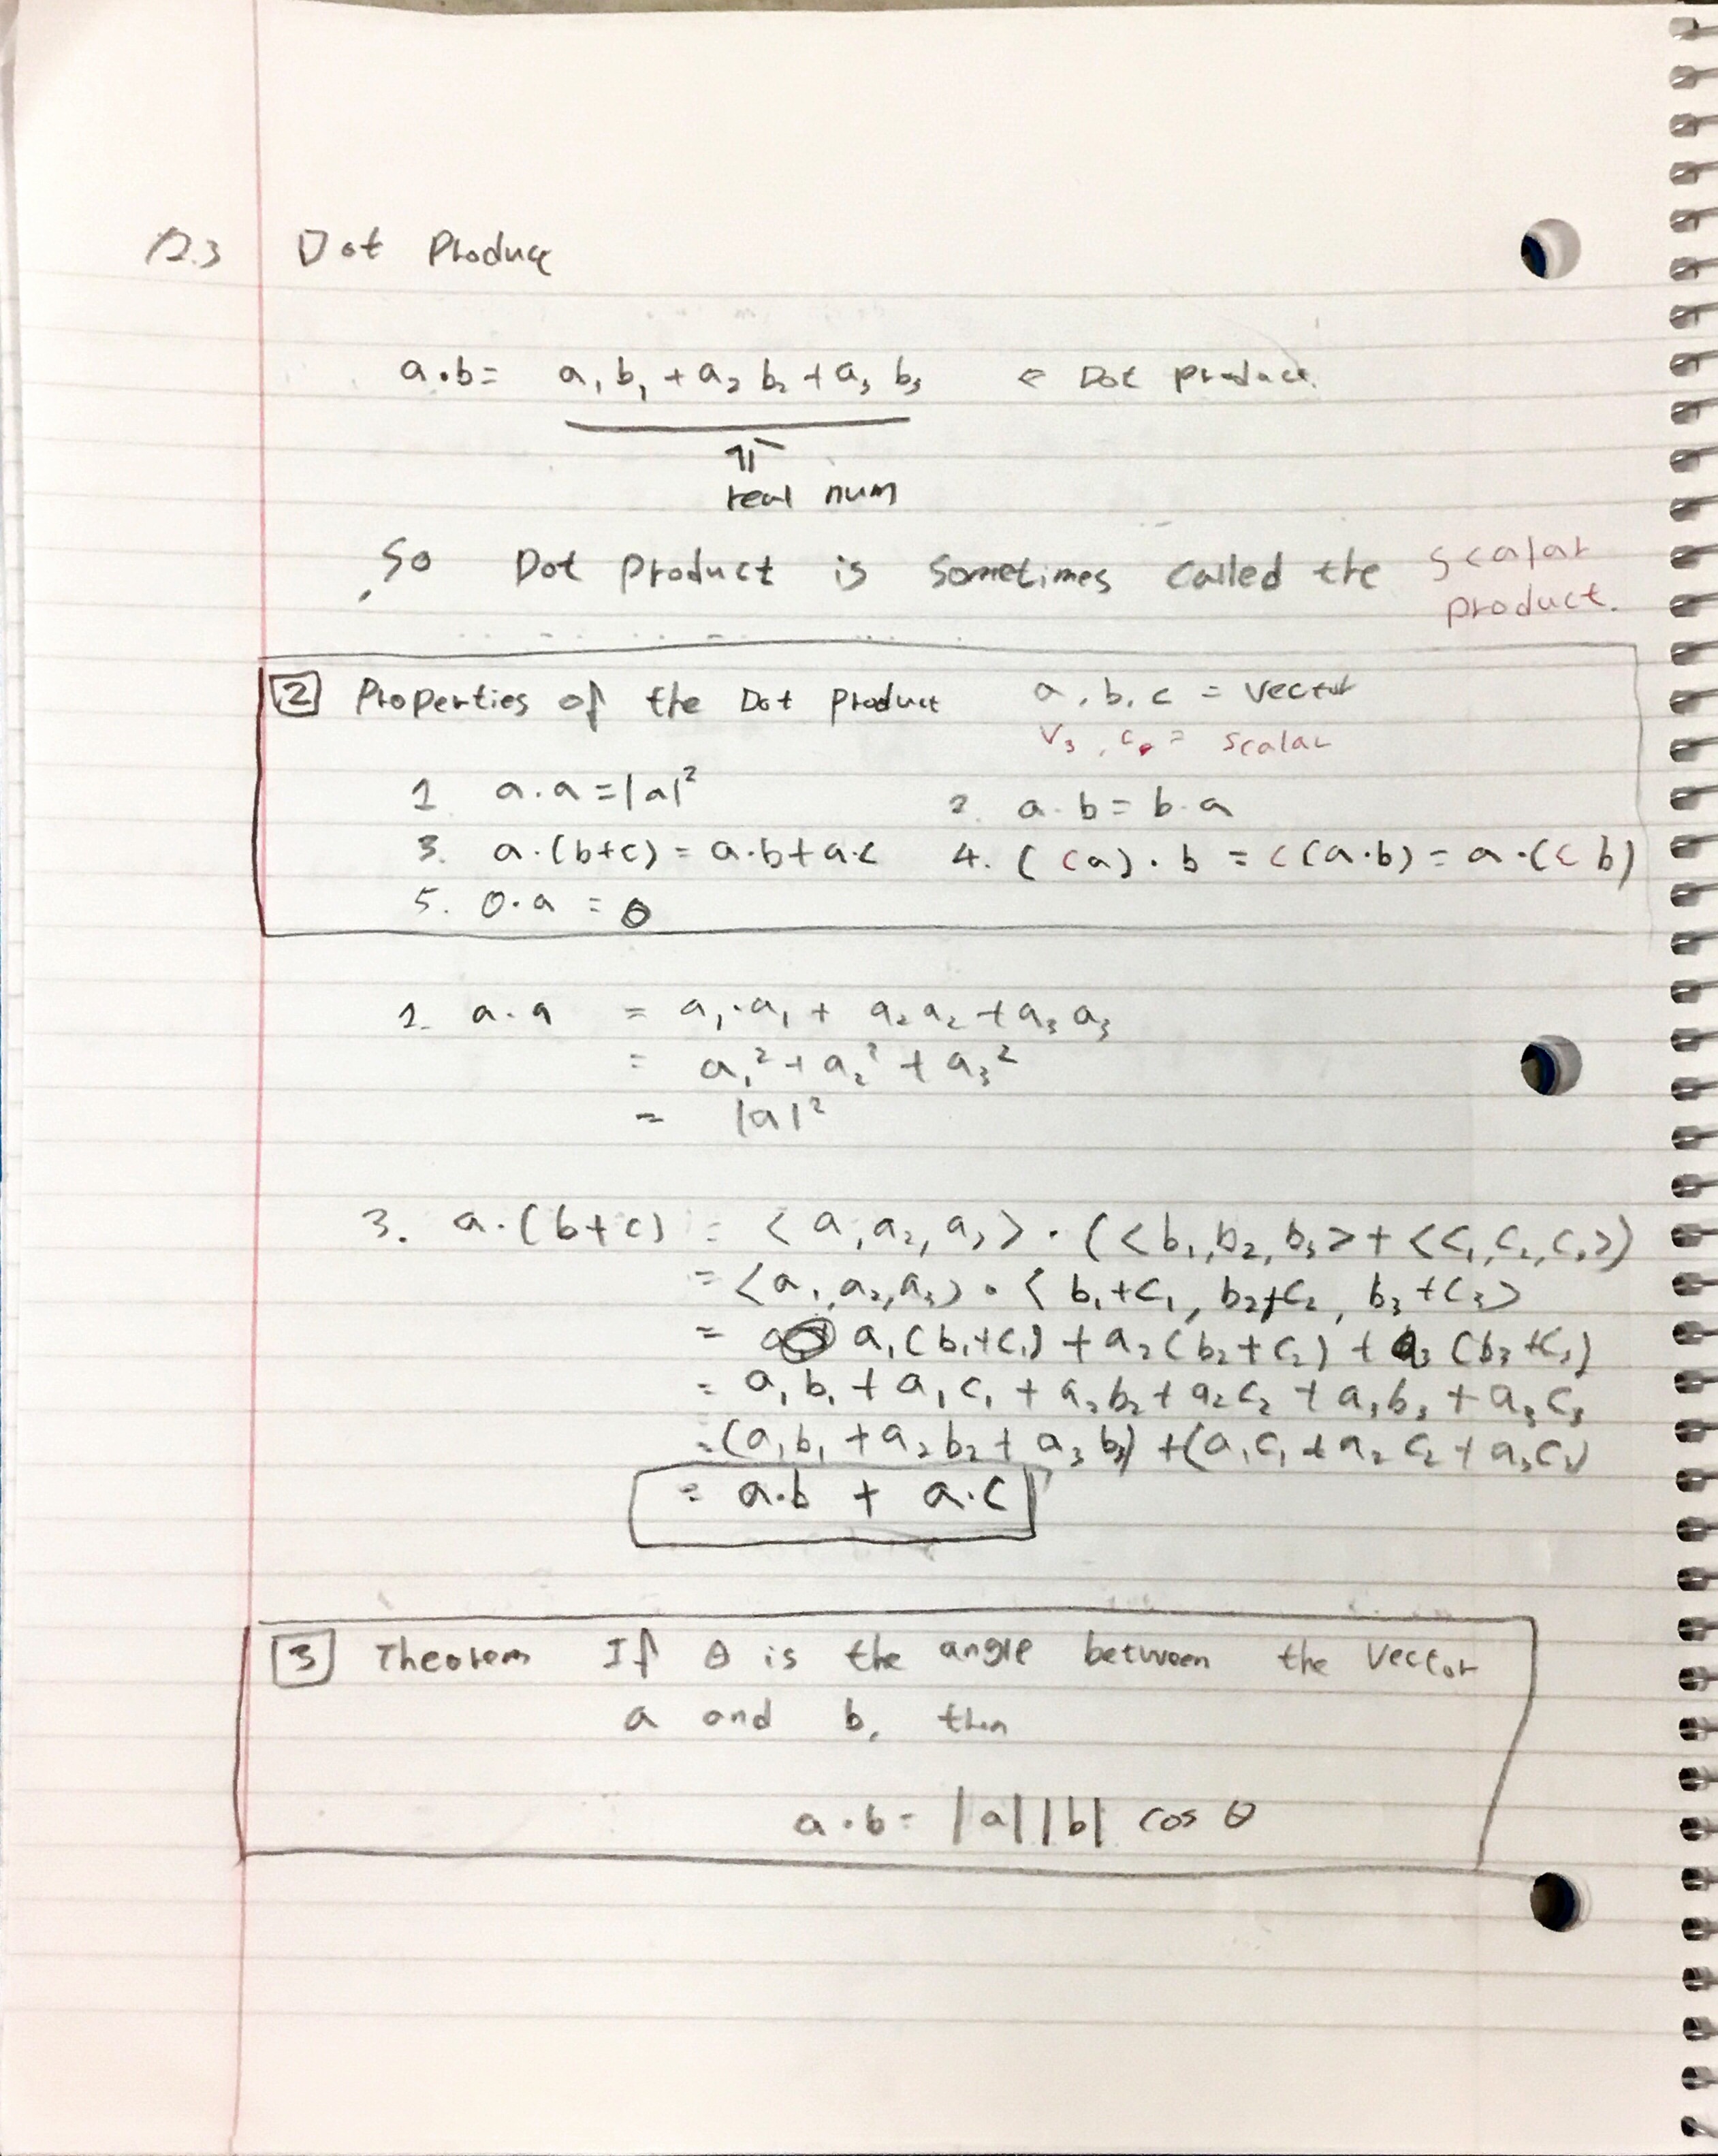 12.3 Dot Produce
a·b = a₁b₁ + a₂b₂ + a₃b₃ ← Dot product.
⇑
real num
So Dot product is sometimes called the scalar
product.
2 Properties of the Dot product a, b, c = vector
V₃, c = scalar
1 a·a = |a|² 2. a·b = b·a
3. a·(b+c) = a·b + a·c 4. (ca)·b = c(a·b) = a·(cb)
5. 0·a = 0
1. a·a = a₁·a₁ + a₂a₂ + a₃a₃
= a₁² + a₂² + a₃²
= |a|²
3. a·(b+c) = <a₁a₂, a₃> · (<b₁, b₂, b₃> + <c₁, c₂, c₃>)
= <a₁, a₂, a₃> · <b₁+c₁, b₂+c₂, b₃+c₃>
= a₁(b₁+c₁) + a₂(b₂+c₂) + a₃(b₃+c₃)
= a₁b₁ + a₁c₁ + a₂b₂ + a₂c₂ + a₃b₃ + a₃c₃
= (a₁b₁ + a₂b₂ + a₃b₃) + (a₁c₁ + a₂c₂ + a₃c₃)
= a·b + a·c
3 Theorem If θ is the angle between the vector
a and b, then
a·b = |a||b| cos θ